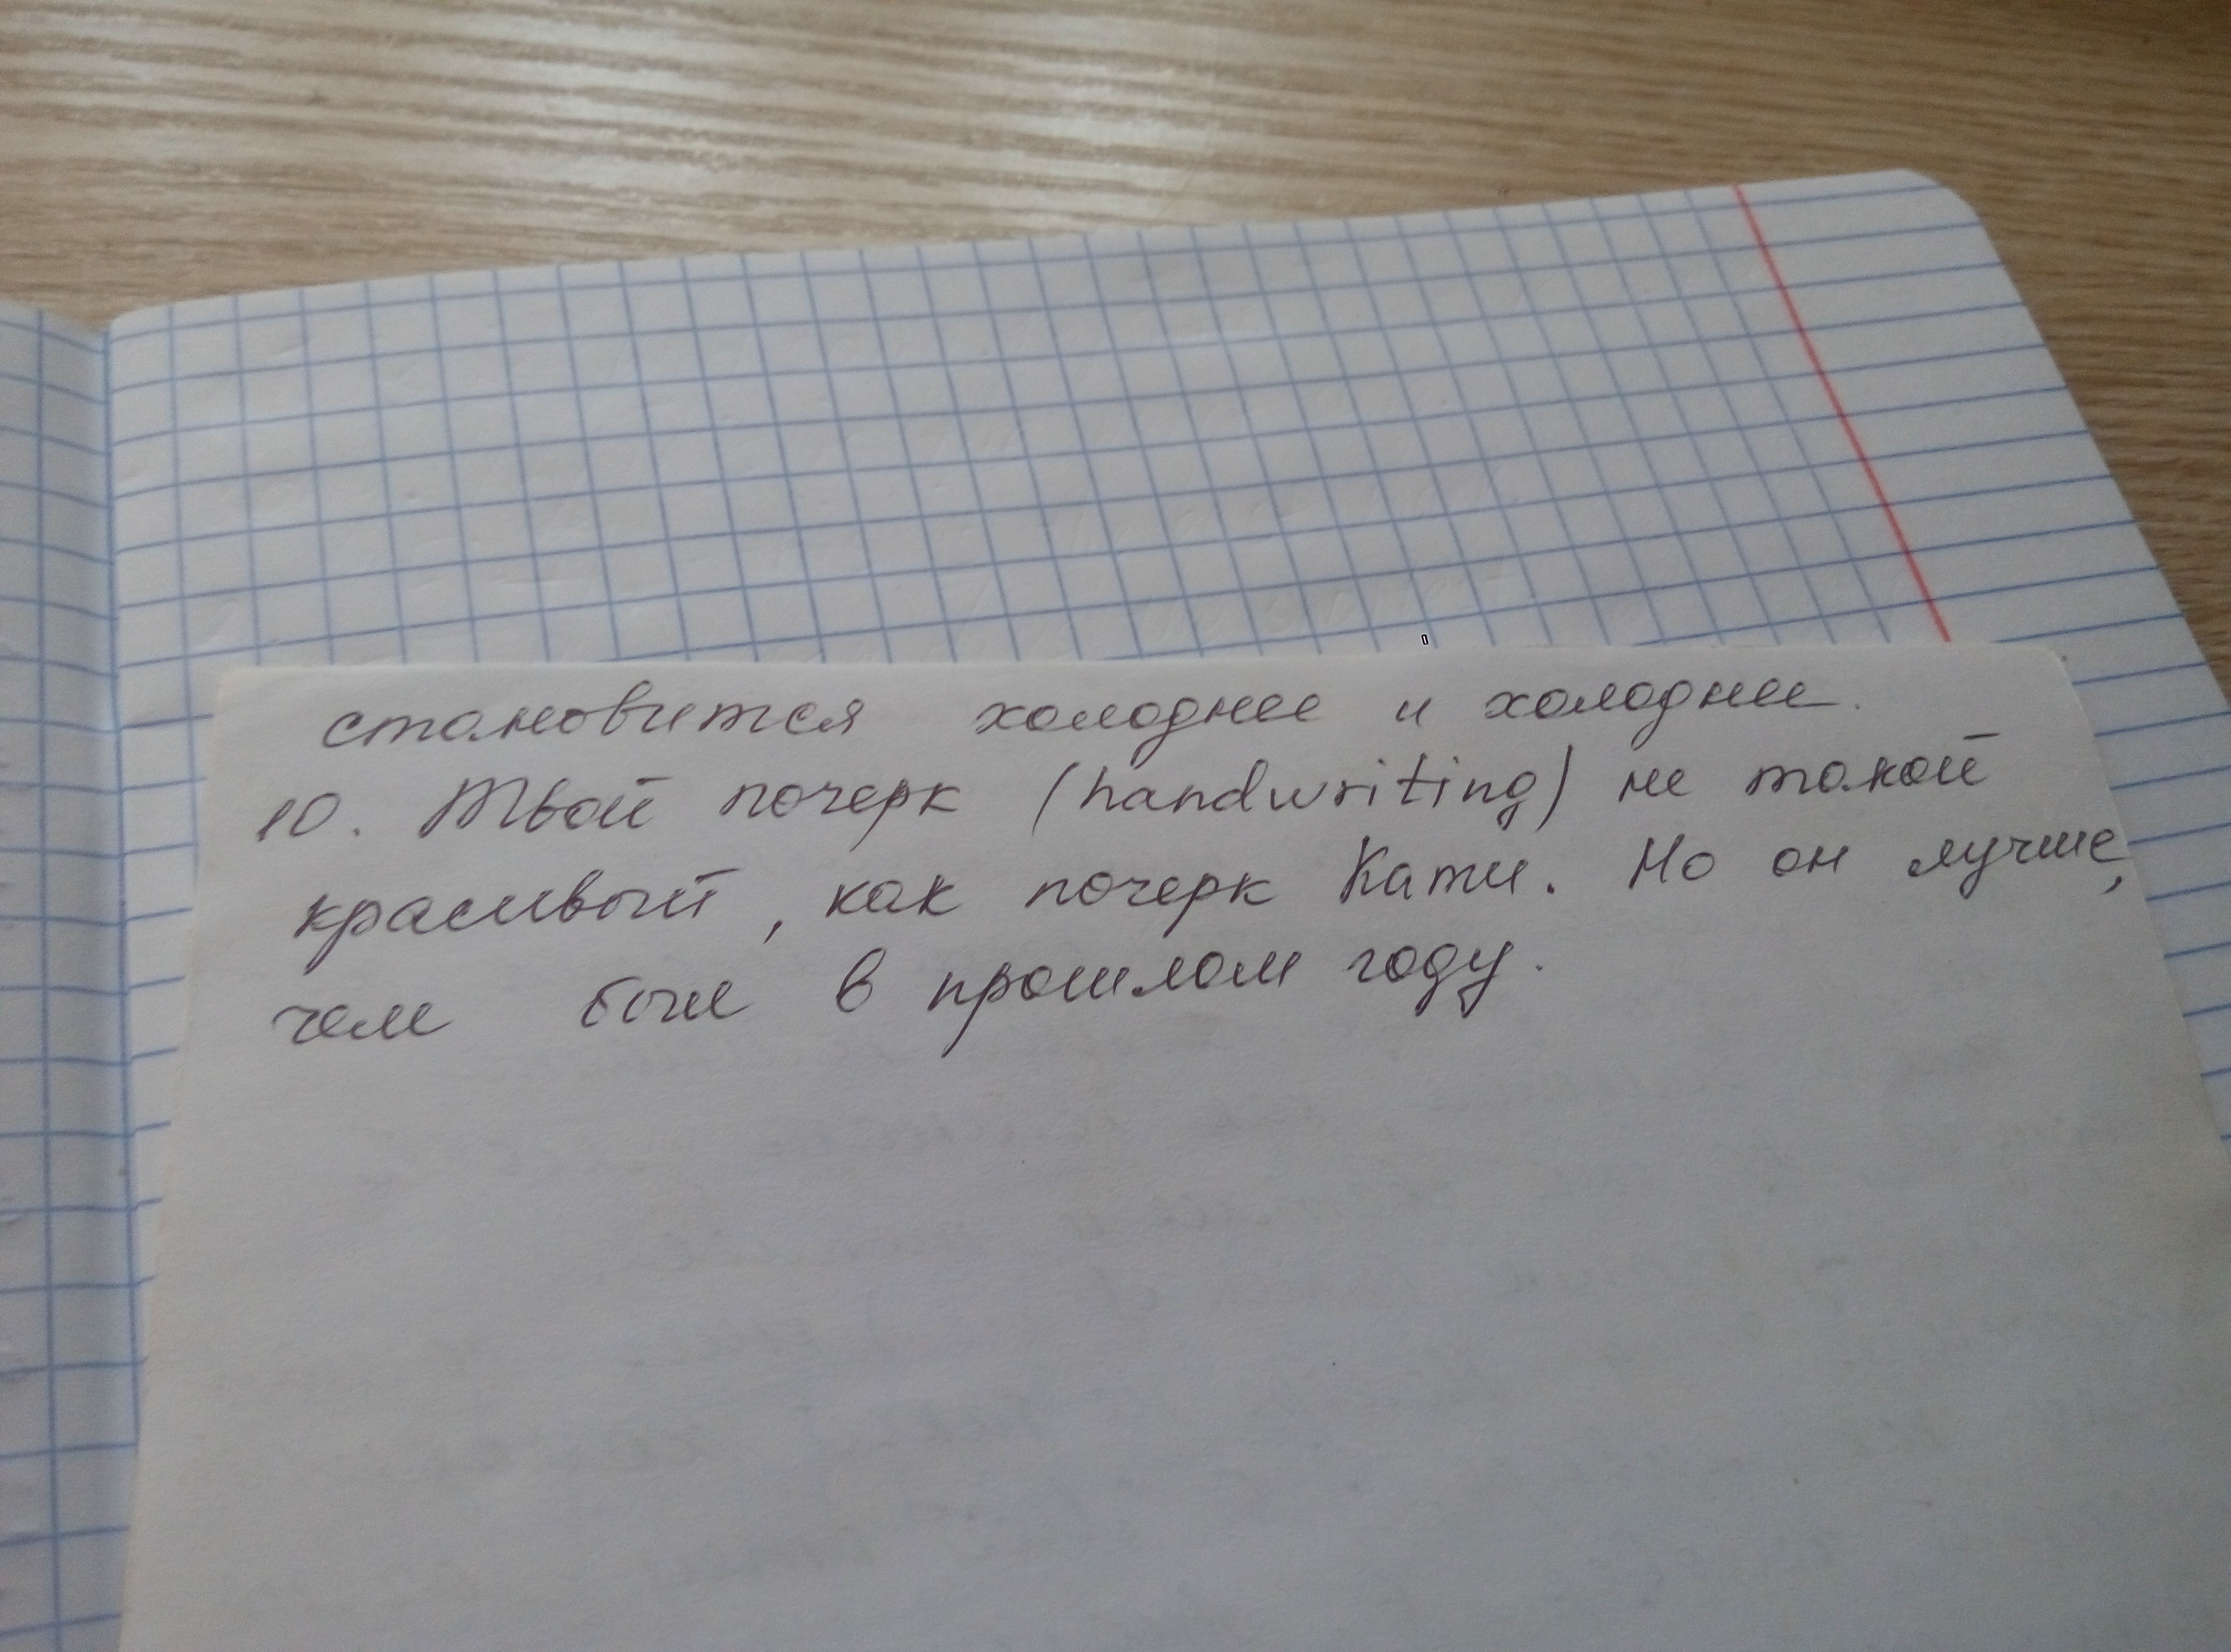 становится холоднее и холоднее.
10. Твой почерк (handwriting) не такой
красивый, как почерк Кати. Но он лучше,
чем был в прошлом году.